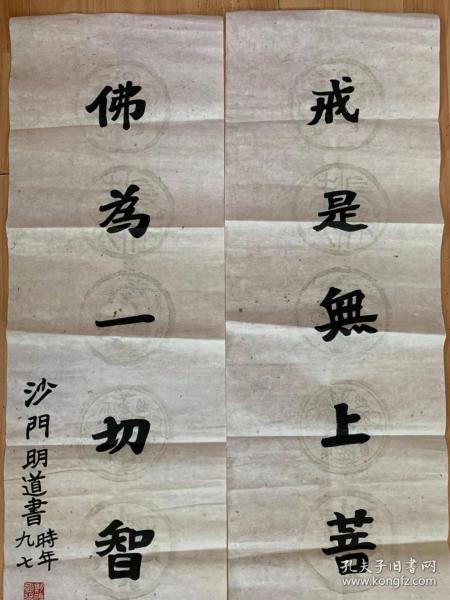 戒是無上菩
佛為一切智
沙門明道書
時年
九七
孔夫子旧书网
www.kongfz.com